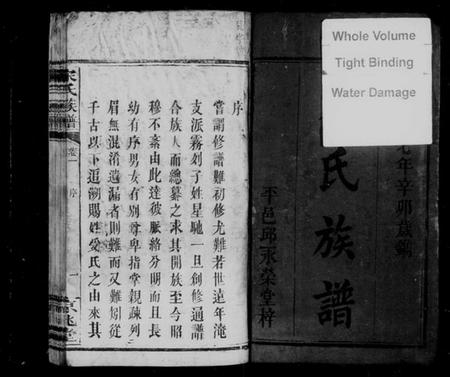 Whole Volume
Tight Binding
Water Damage
七年辛卯歲鐫
氏族譜
平邑邱永榮堂梓
序
嘗謂修譜難初修尤難若世遠年淹
支派霧列子姓星馳一旦創修通譜
合族人而總彙之求其開族至今昭
穆不紊由此達彼脈絡分明而且長
幼有序男女有別尊卑指掌親疎列
眉無混淆遺漏者則難而又難矧從
千古以下追溯賜姓受氏之由來其
宋氏族譜
卷一
序
一
京兆堂